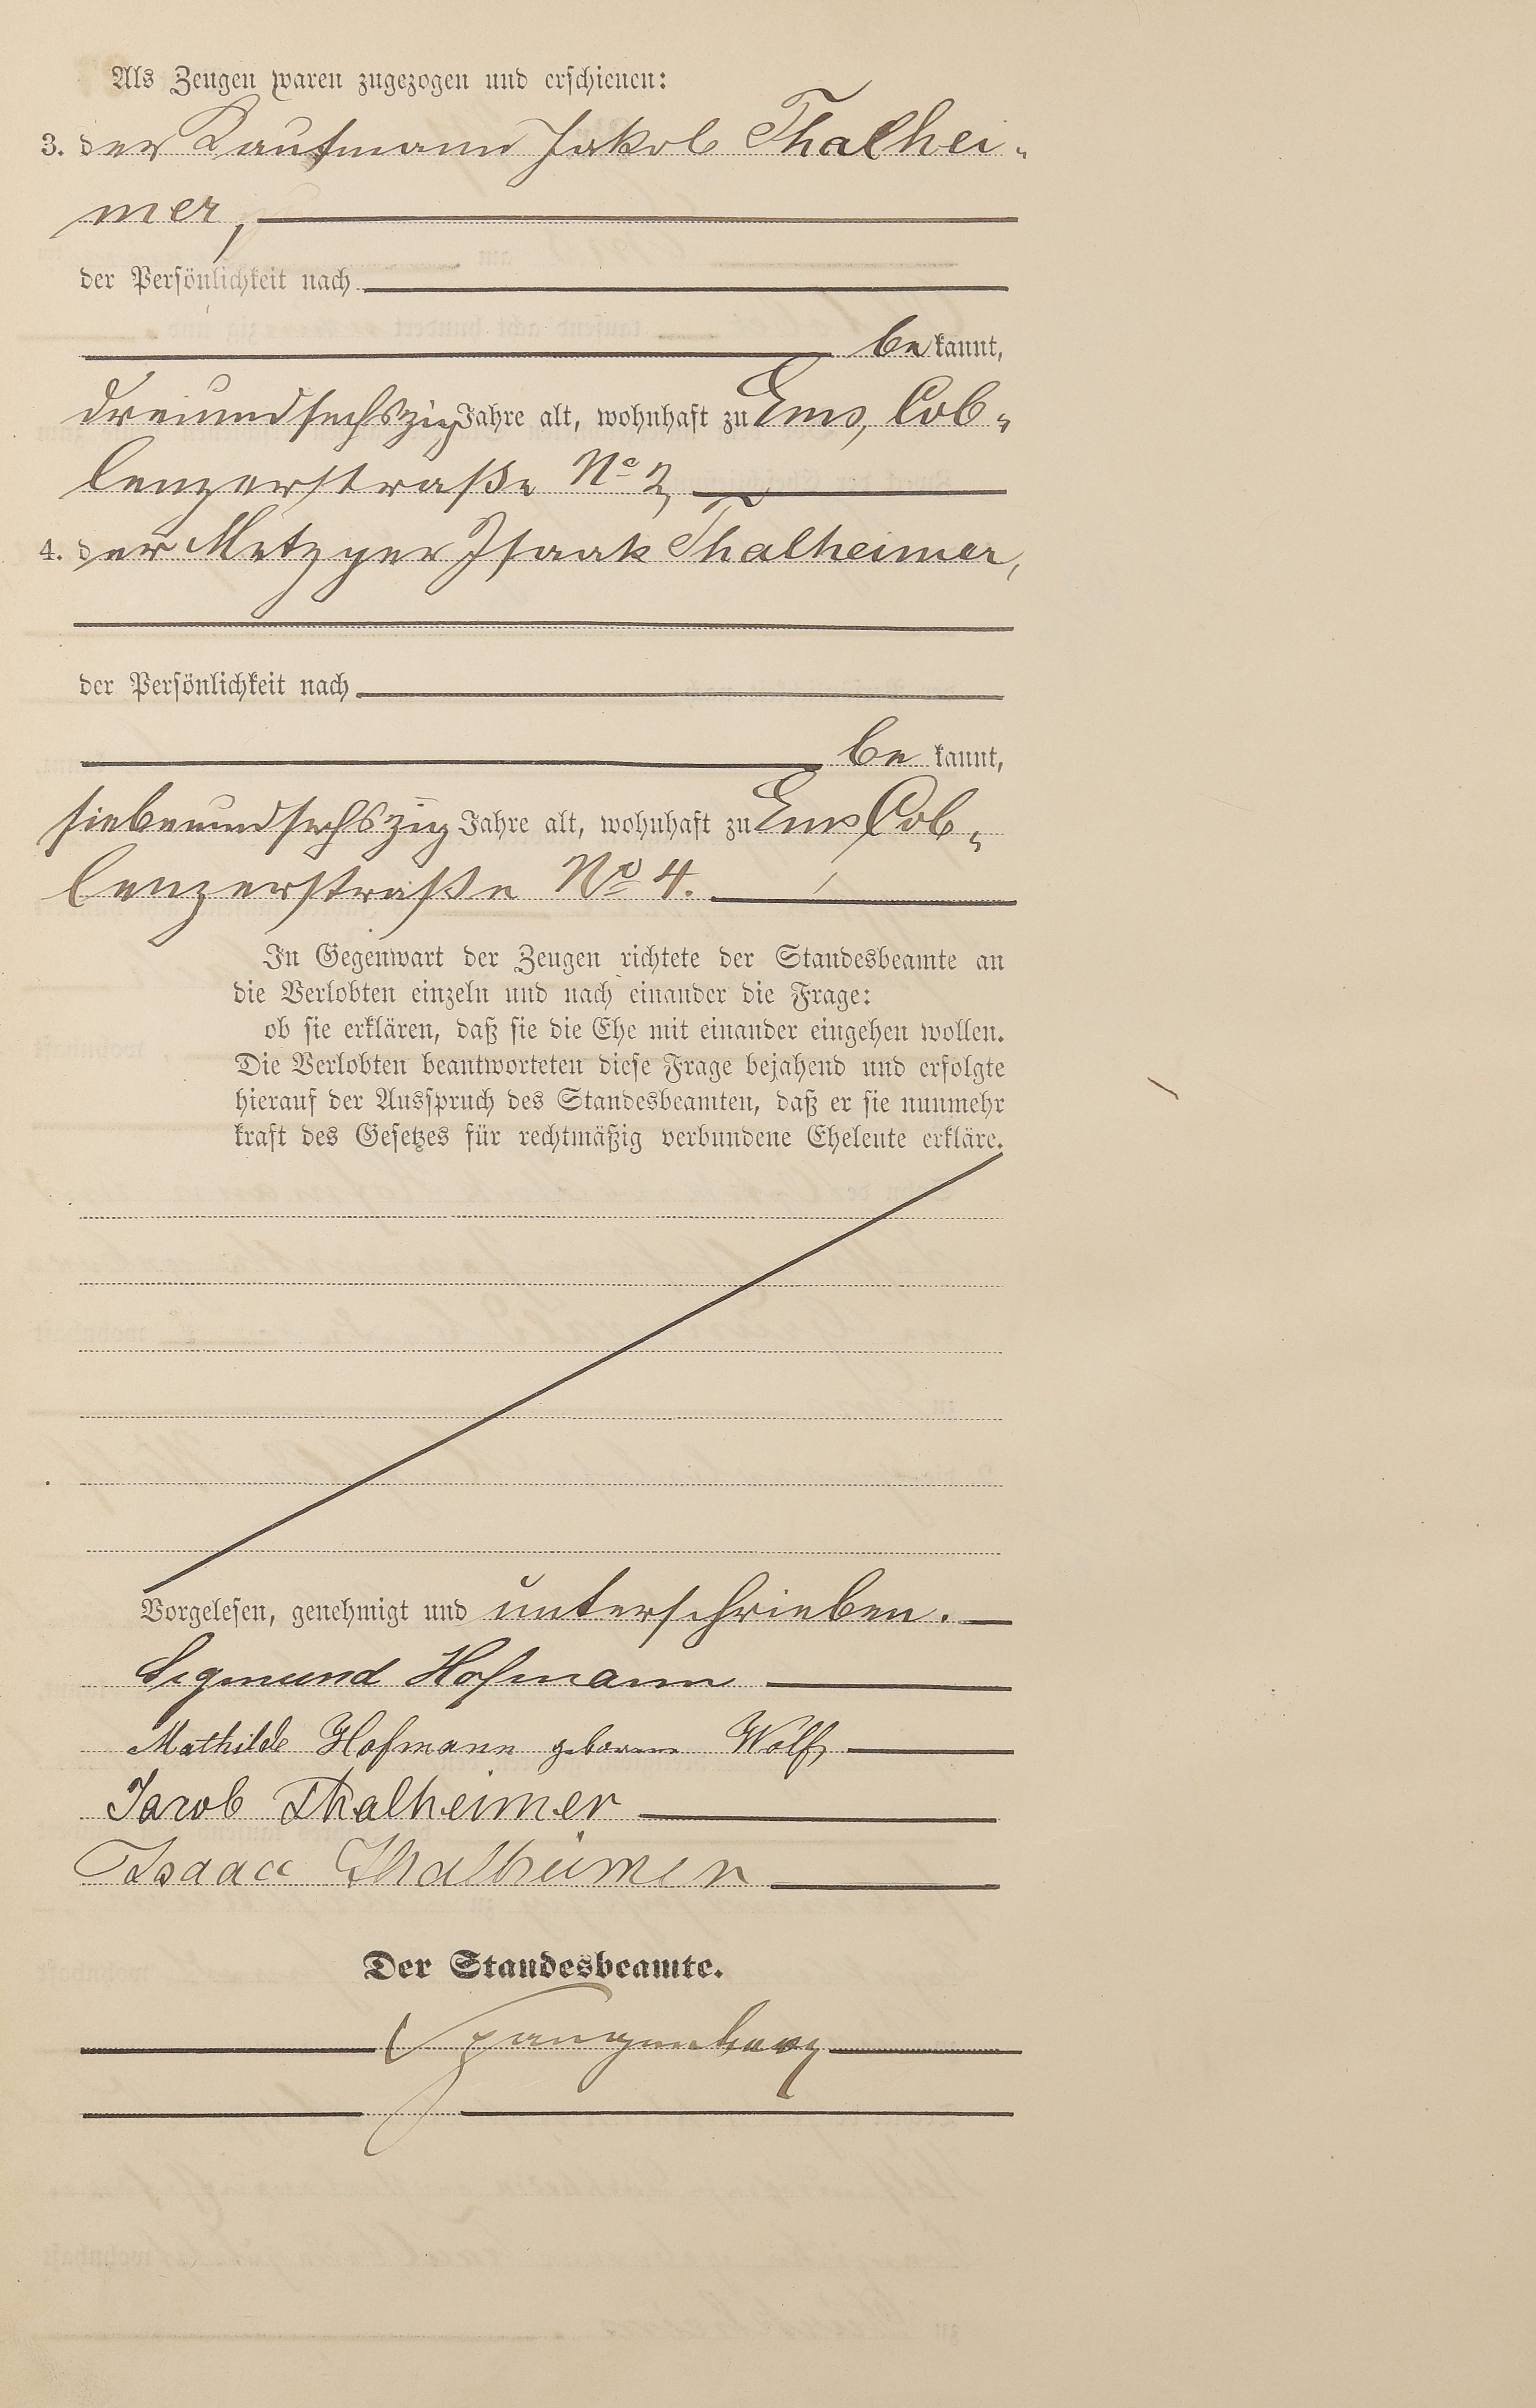 Als Zeugen waren zugezogen und erschienen:
3. der Kaufmann Jakob Thalhei-
mer,
der Persönlichkeit nach
be kannt,
dreiundsechszig Jahre alt, wohnhaft zu Ems, Cob-
lenzerstraße No 2,
4. der Metzger Isaak Thalheimer,
der Persönlichkeit nach
be kannt,
siebenundsechszig Jahre alt, wohnhaft zu Ems, Cob-
lenzerstraße No 4.
In Gegenwart der Zeugen richtete der Standesbeamte an
die Verlobten einzeln und nach einander die Frage:
ob sie erklären, daß sie die Ehe mit einander eingehen wollen.
Die Verlobten beantworteten diese Frage bejahend und erfolgte
hierauf der Ausspruch des Standesbeamten, daß er sie nunmehr
kraft des Gesetzes für rechtmäßig verbundene Eheleute erkläre.
Vorgelesen, genehmigt und unterschrieben.
Sigmund Hofmann
Mathilde Hofmann geborene Wolf
Jacob Thalheimer
Isaac Thalheimer
Der Standesbeamte.
Spangenberg